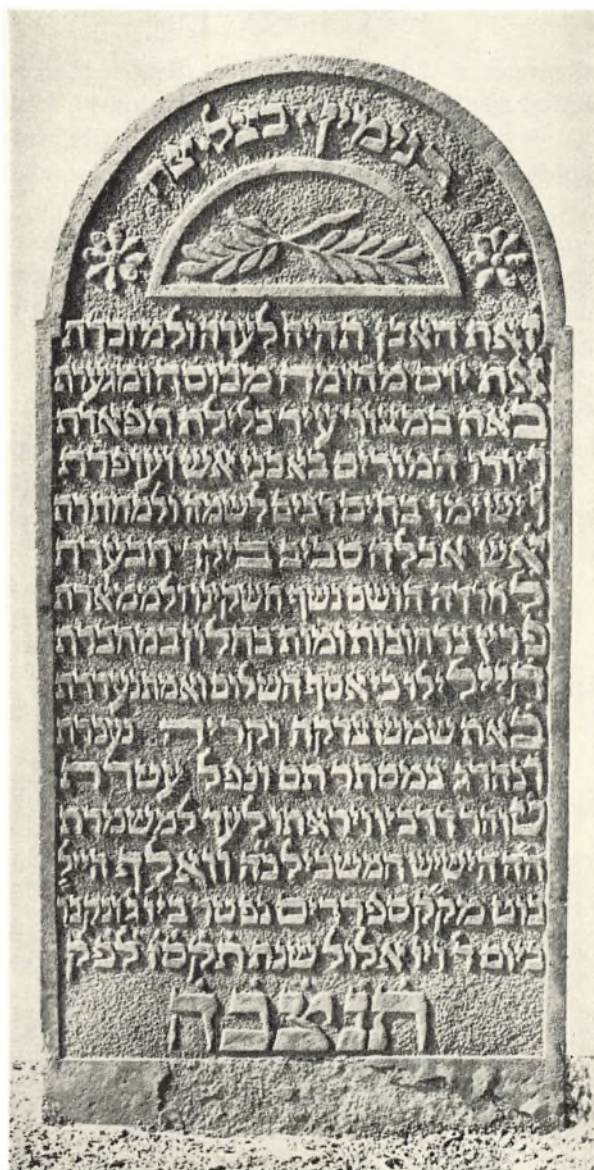 זאת האבן תהיה לעדה ולמזכרת
את יום מהומה מבוסה ומגערת
באה במצור עיר כלילת תפארת
ויורו המורים באבני אש ועופרת
וישוימו בתים רבים לשמה ולמחתרת
אש אכלה סביב ביקד תבערת
לחרדה הושם נשף חשקינו לממארת
פרץ ברחובות ומות בחלון במחברת
היילילו כי אסף השלום ואמת נעדרת
באה שמש צדקה וקריה נעכרת
ונהרג במסתר תם ונפל עטרת
טוהר דרכיו ויראתו לעד למשמרת
הישיש המשכיל כה וואלף הייל
מקק ספרדים נפטר ביו ג ונקבר
ביום ד ויו אלול שנת תקסז לפק
תנצבה